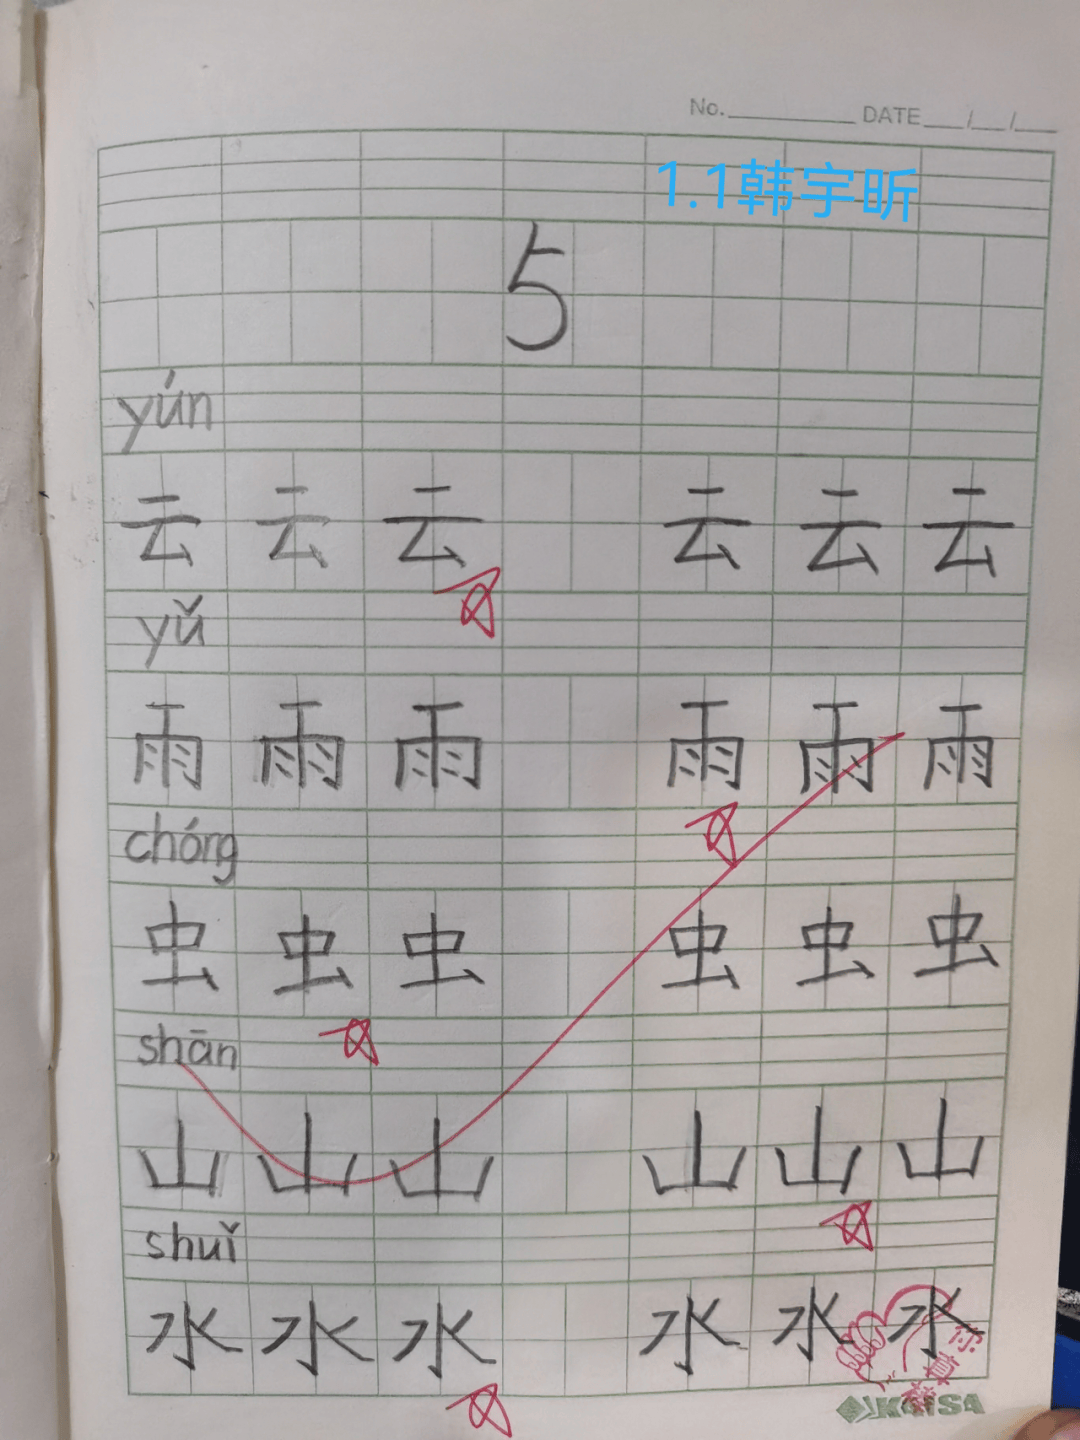 No. DATE / /
1.1韩宇昕
5
yún
云 云 云 云 云 云
yǔ
雨 雨 雨 雨 雨 雨
chóng
虫 虫 虫 虫 虫 虫
shān
山 山 山 山 山 山
shuǐ
水 水 水 水 水 水
你真棒
KAISA